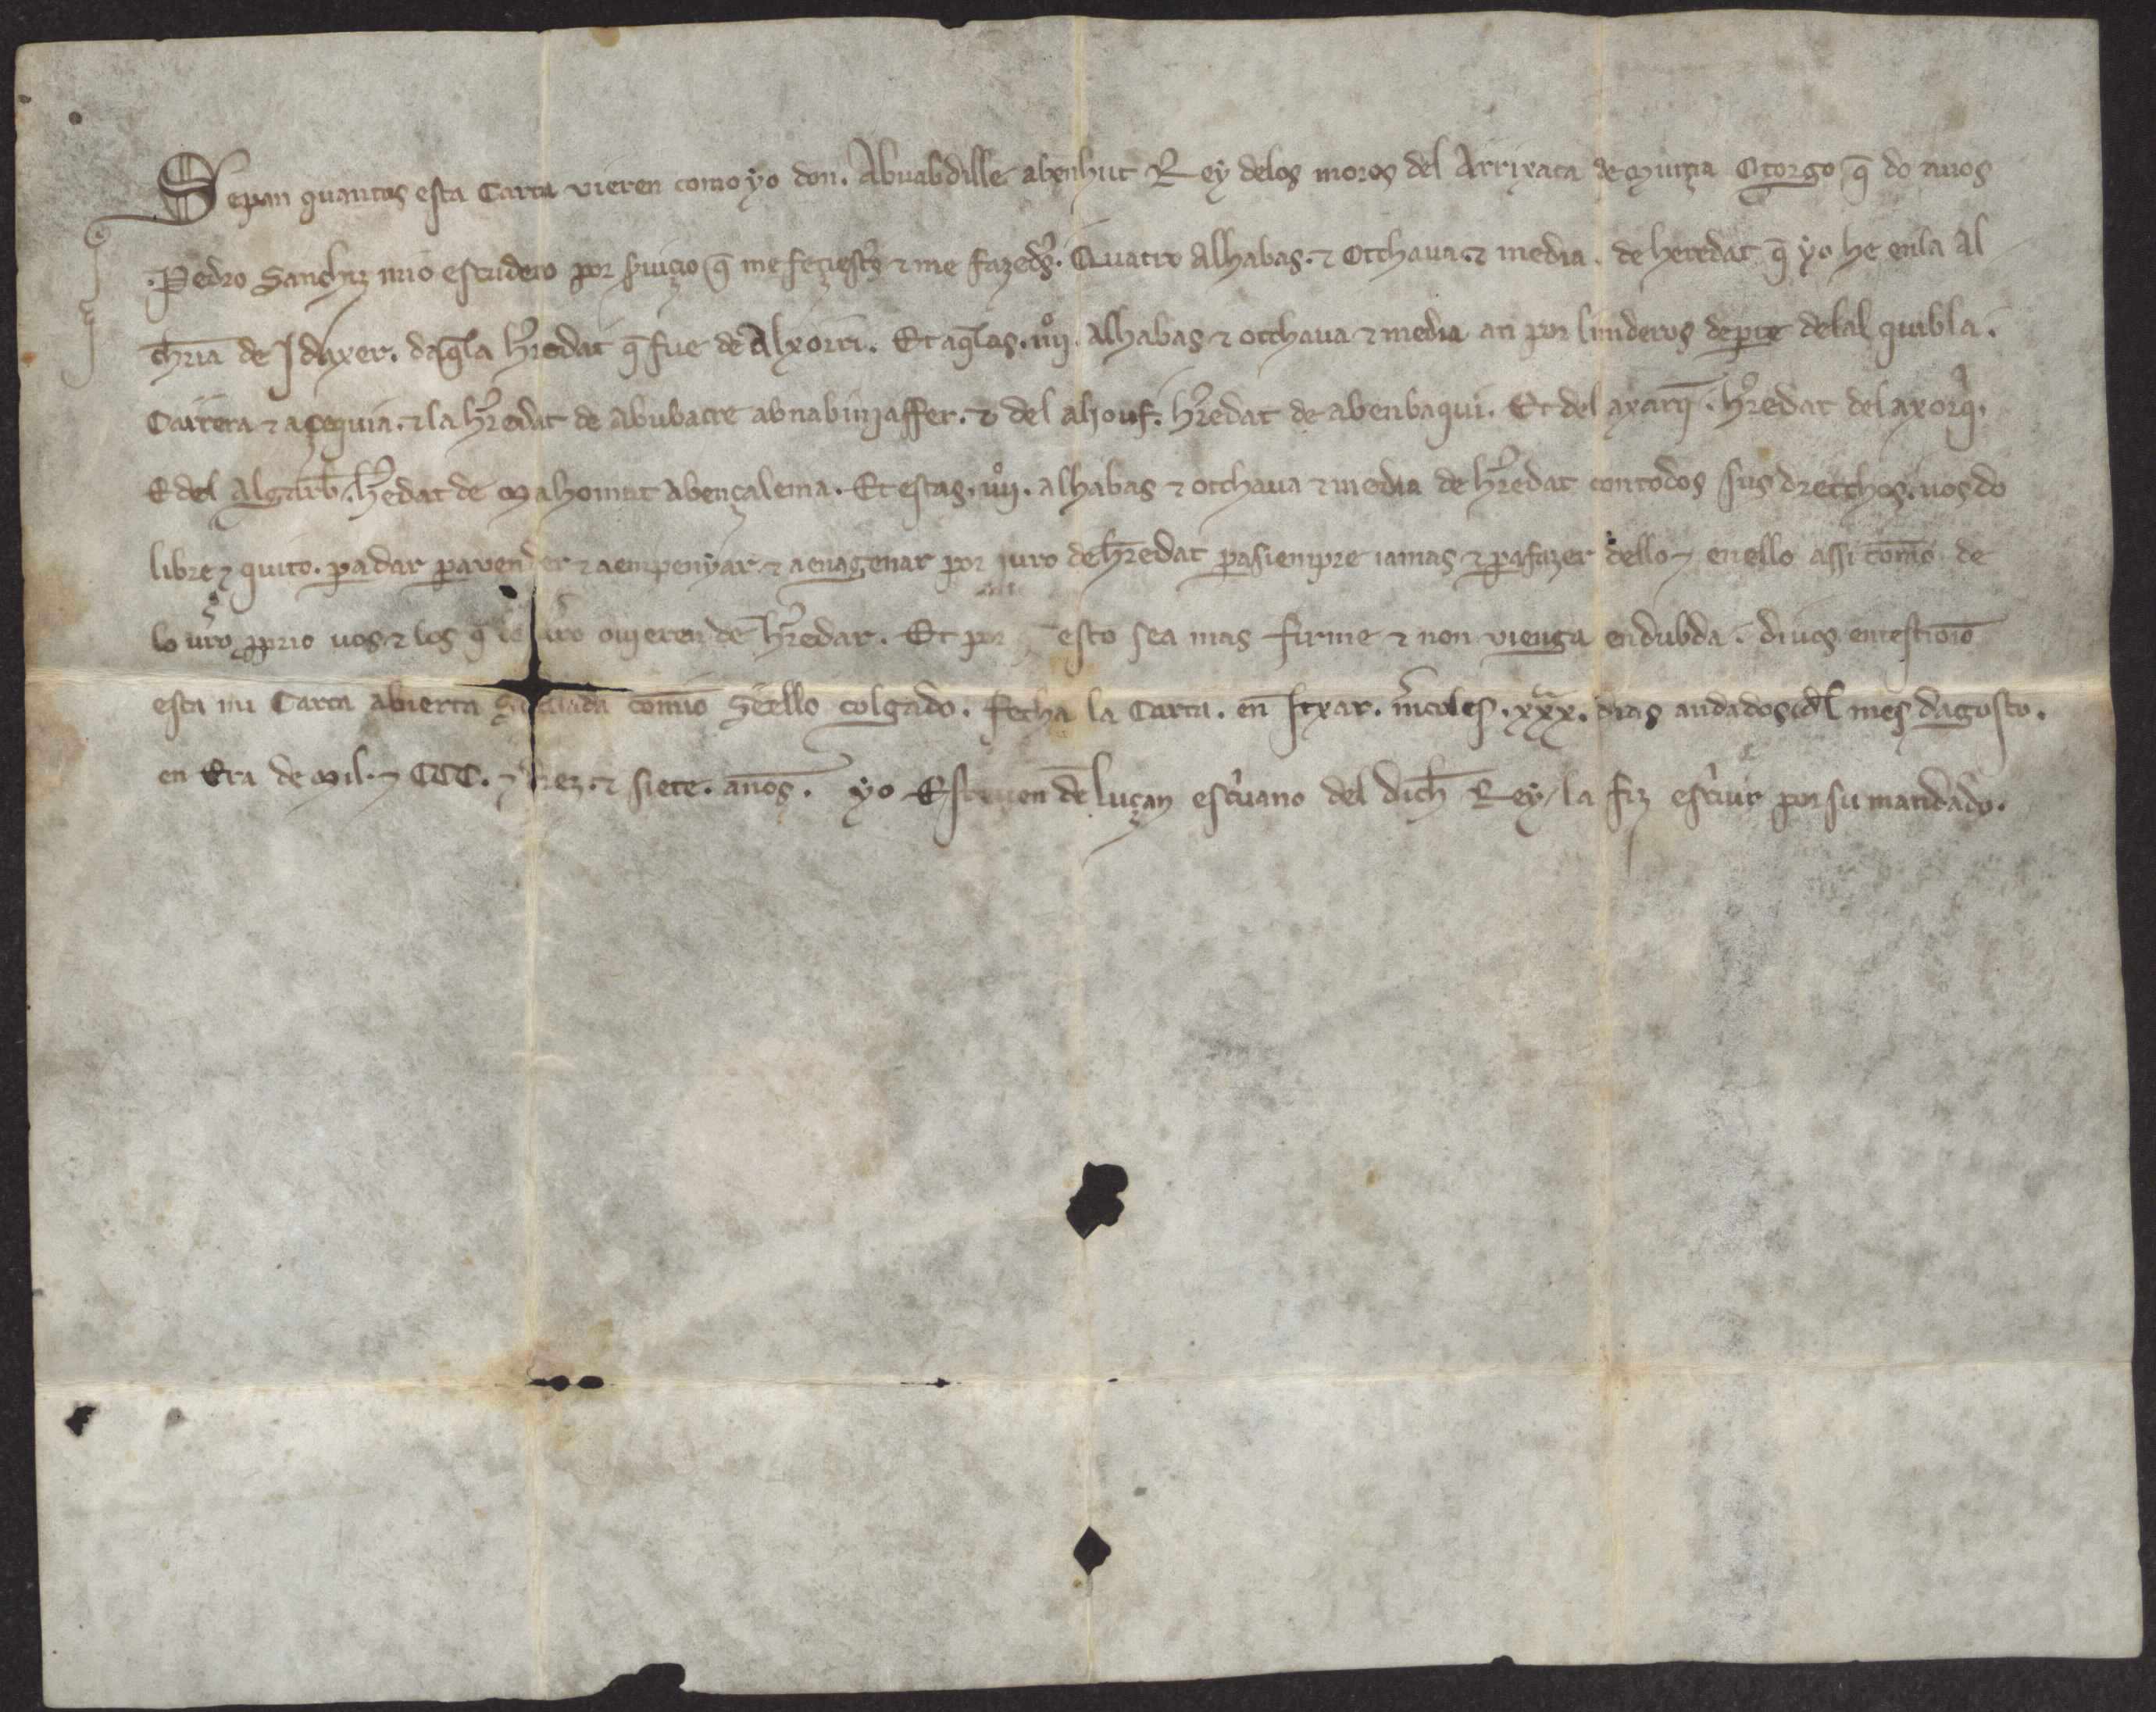 Sepan quantos esta Carta vieren como yo don. Abuabdille abenhut Rey delos moros del Arrixaca de Murçia Otorgo q̄ do auos
.Pedro Sanchiz mio escudero por s̃uiçio q̄ me feziest̃s ⁊ me fazed̃s. Quatro Alhabas. ⁊ Otchaua. ⁊ media. de heredat q̄ yo he enla al
ch̃ria de Idaxer. daq̄la h̃redat q̄ fue de Alxorri. Et aq̄las. iiijº. Alhabas ⁊ otchaua ⁊ media an por linderos de ꝑte delal quibla.
Carrera ⁊ açequia. ⁊ la h̃redat de Abubacre abnabinjaffer. ⁊ del alhouf. h̃redat de abenbaqui. Et del axarq̄. h̃redat del axorq̃.
E del Algarb̃. h̃edat de Mahomat Abençalema. Et estas. iiijº. alhabas ⁊ otchaua ⁊ media de h̃redat con todos sus dretchos. uos do
libre ⁊ quito. ꝑa dar ꝑa vender ⁊ a empenyar. ⁊ a enagenar por juro de h̃redat ꝑa siempre iamas ⁊ ꝑa fazer dello ⁊ enello assi como de
lo ṽro ꝓprio uos ⁊ los q̄ lo ouieren de h̃redar. Et por esto sea mas firme ⁊ non vienga en dubda. diuos en testio͂io
esta mi Carta abierta con mio Seello colgado. Fecha la Carta. en Itxar. m̃coles. xxx. dias andados del mes dagosto.
en Era de Mil. ⁊ CCC. ⁊ diez. ⁊ siete. annos. yo Esteuen de Luçan esc̃uano del dich̃ Rey / la fiz esc̃uir por su mandado.